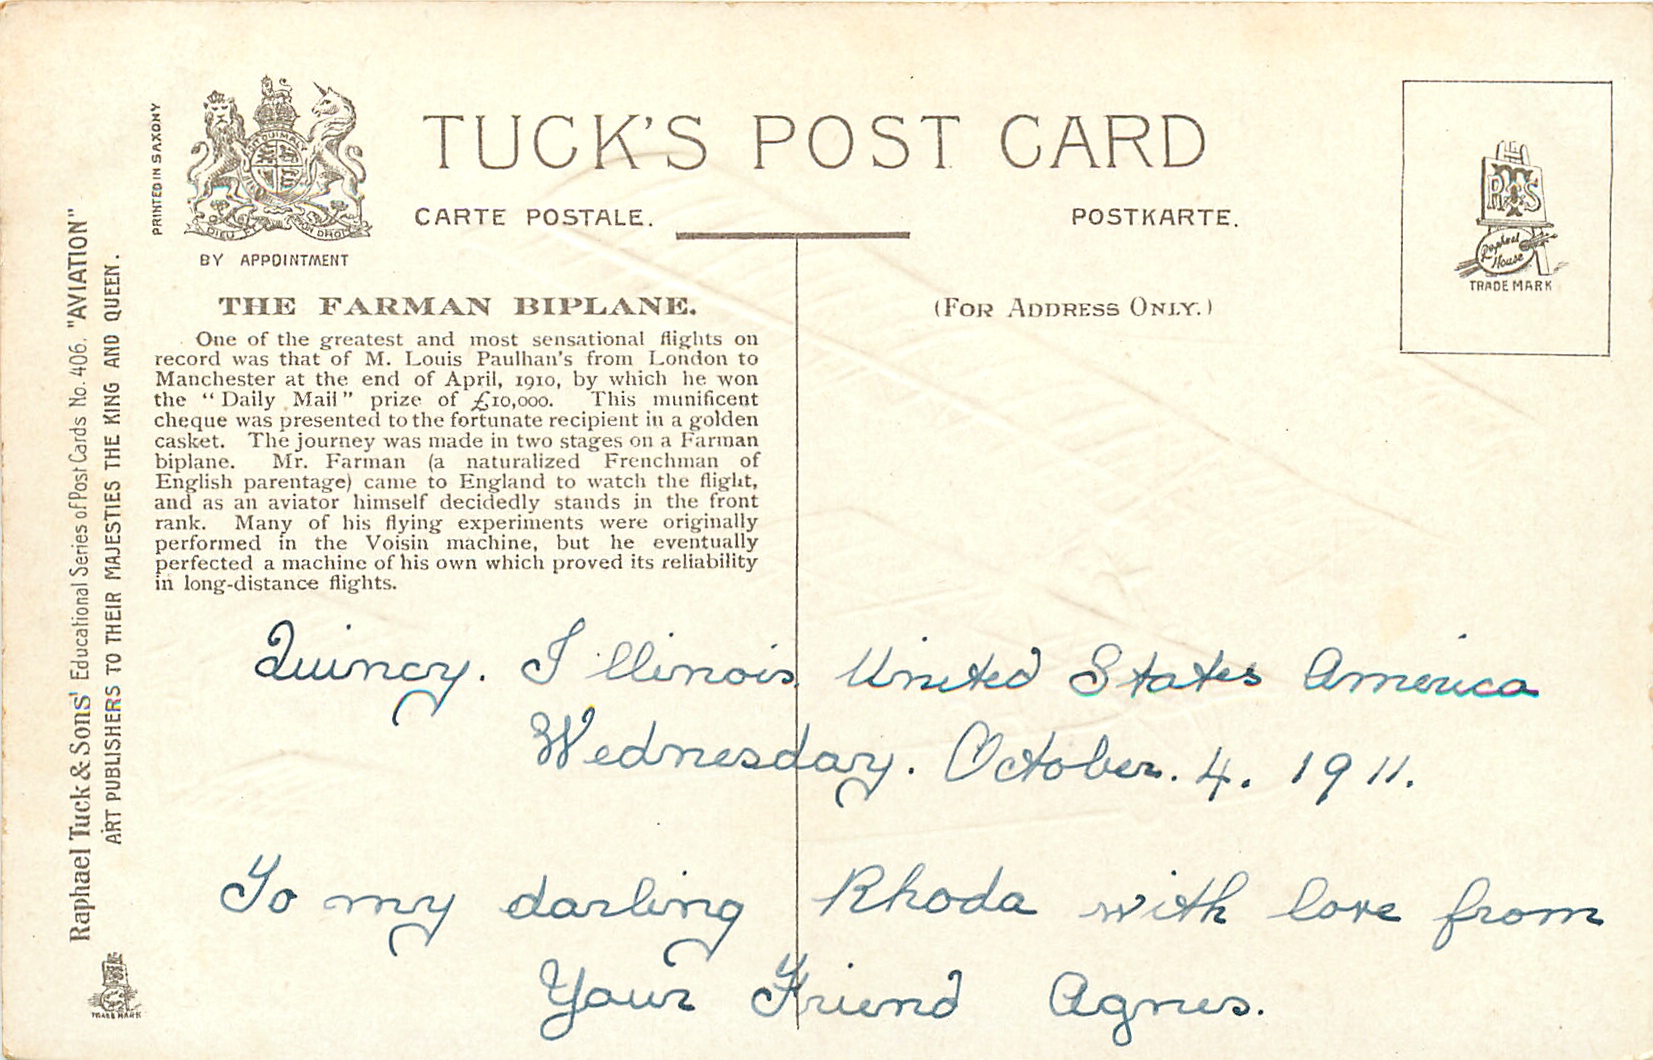 TUCK'S POST CARD
CARTE POSTALE.
POSTKARTE.
PRINTED IN SAXONY
DIEU ET MON DROIT
BY APPOINTMENT
RTS
Raphael
House
TRADE MARK
(FOR ADDRESS ONLY.)
THE FARMAN BIPLANE.
One of the greatest and most sensational flights on
record was that of M. Louis Paulhan's from London to
Manchester at the end of April, 1910, by which he won
the "Daily Mail" prize of £10,000. This munificent
cheque was presented to the fortunate recipient in a golden
casket. The journey was made in two stages on a Farman
biplane. Mr. Farman (a naturalized Frenchman of
English parentage) came to England to watch the flight,
and as an aviator himself decidedly stands in the front
rank. Many of his flying experiments were originally
performed in the Voisin machine, but he eventually
perfected a machine of his own which proved its reliability
in long-distance flights.
Quincy. Illinois United States America
Wednesday. October. 4. 1911.
To my darling Rhoda with love from
Your Friend Agnes.
Raphael Tuck & Sons' Educational Series of Post Cards No. 406. "AVIATION"
ART PUBLISHERS TO THEIR MAJESTIES THE KING AND QUEEN.
TRADE MARK